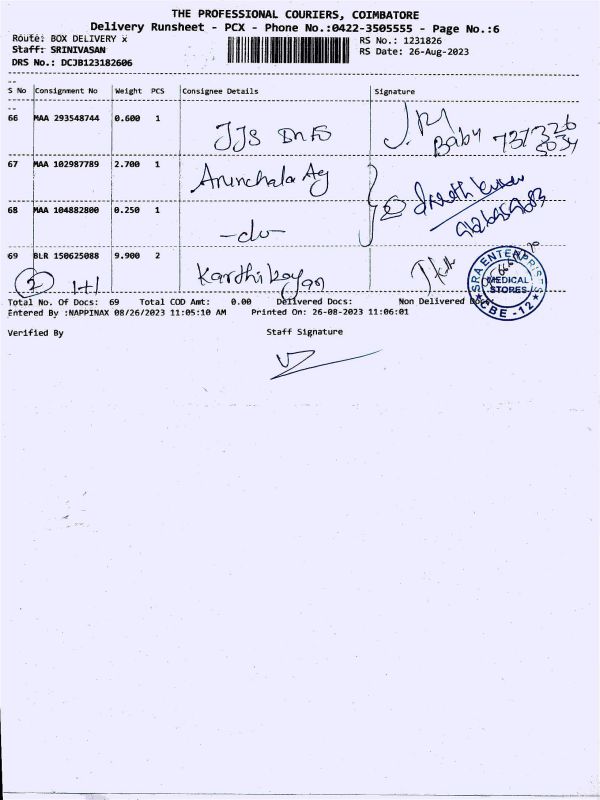 THE PROFESSIONAL COURIERS, COIMBATORE
Delivery Runsheet - PCX - Phone No.:0422-3505555 - Page No.:6
Route: BOX DELIVERY x
RS No.: 1231826
Staff: SRINIVASAN
RS Date: 26-Aug-2023
DRS No.: DCJB123182606
S No Consignment No Weight PCS Consignee Details Signature
66 MAA 293548744 0.600 1
Baby
67 MAA 102987789 2.700 1
68 MAA 104882800 0.250 1
69 BLR 150625088 9.900 2
2 1+1
SRA ENTERPRISES
MEDICAL
STORES
CBE - 12
Total No. Of Docs: 69 Total COD Amt: 0.00 Delivered Docs: Non Delivered Docs:
Entered By :NAPPINAX 08/26/2023 11:05:10 AM Printed On: 26-08-2023 11:06:01
Verified By Staff Signature